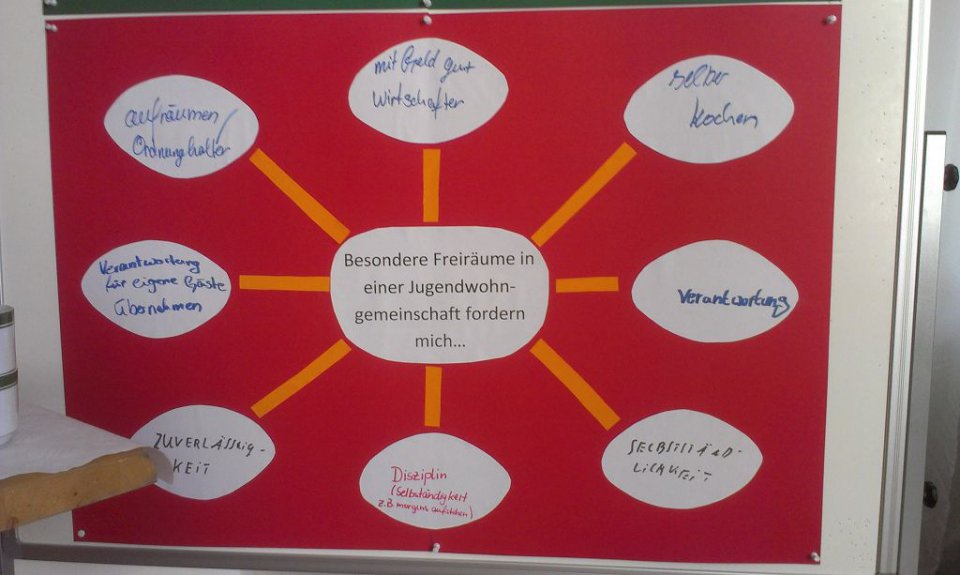 aufräumen/
Ordnung halten
mit Geld gut
Wirtschaften
selber
kochen
Verantwortung
für eigene Gäste
übernehmen
Besondere Freiräume in
einer Jugendwohn-
gemeinschaft fordern
mich...
Verantwortung
ZUVERLÄSSIG-
KEIT
Disziplin
(Selbständigkeit
z.B. morgens aufstehen)
SELBSTSTÄND-
LICHKEIT